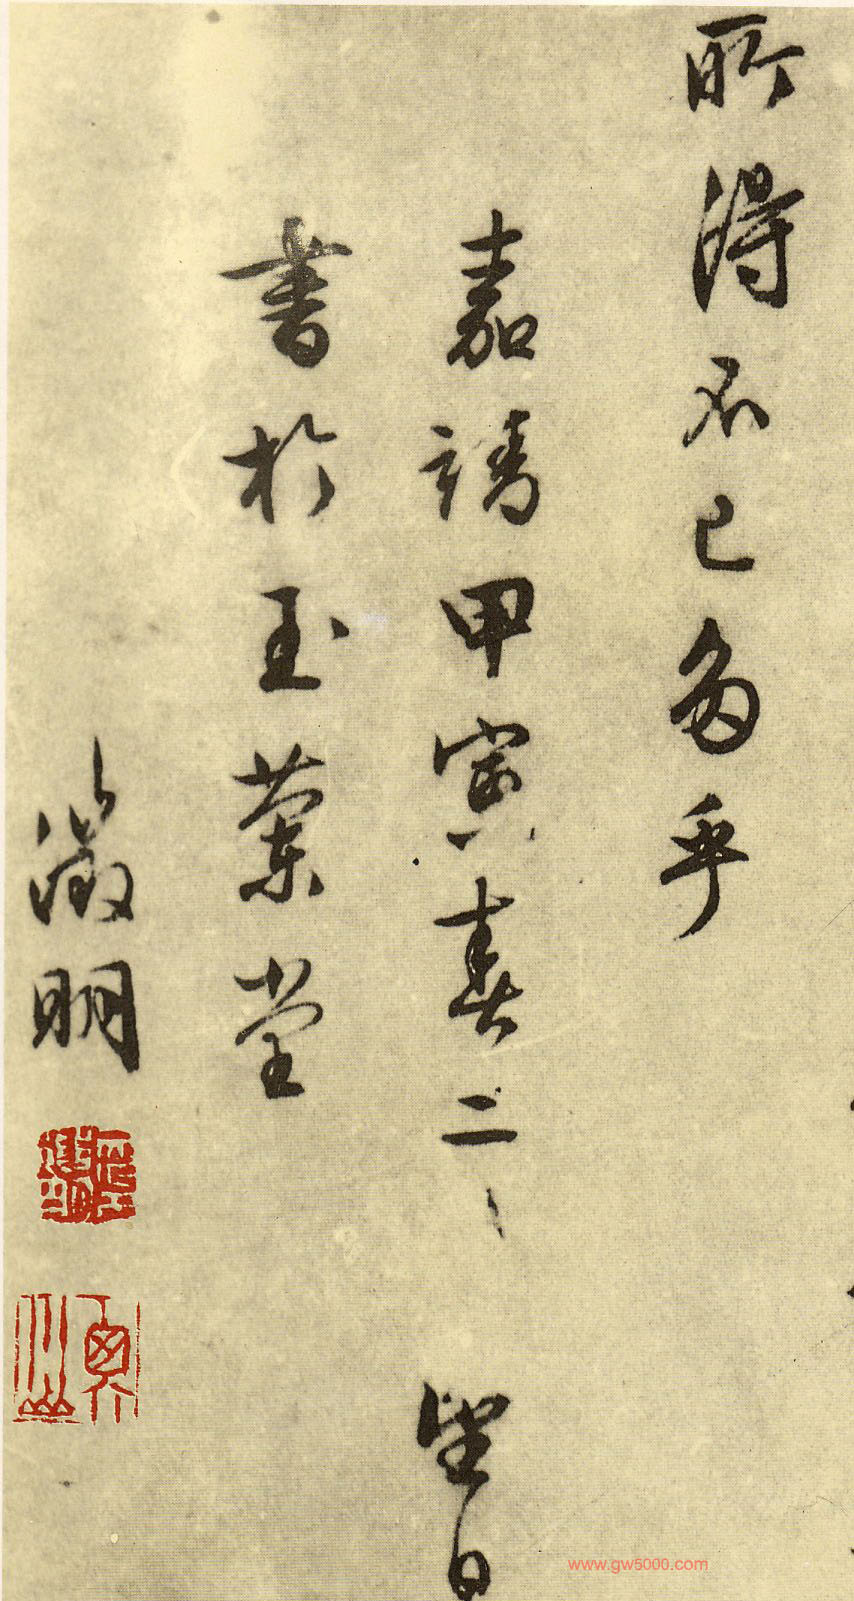 所得不已多乎
嘉靖甲寅春二 望日
書於玉蘭堂
徵明
www.gw5000.com